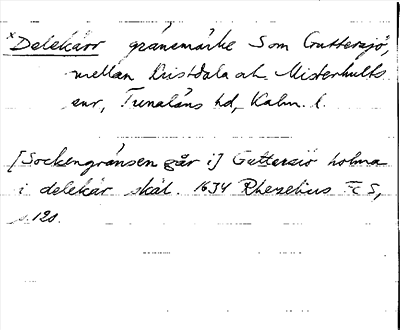 *Delekärr gränsmärke Som Guttersjö,
mellan Kristdala och Misterhults
snr, Tunaläns hd, Kalm. l.
[Sockengränsen går i] Guttersiö holma
i delekär skäl. 1634 Rhezelius FCS,
s. 120.